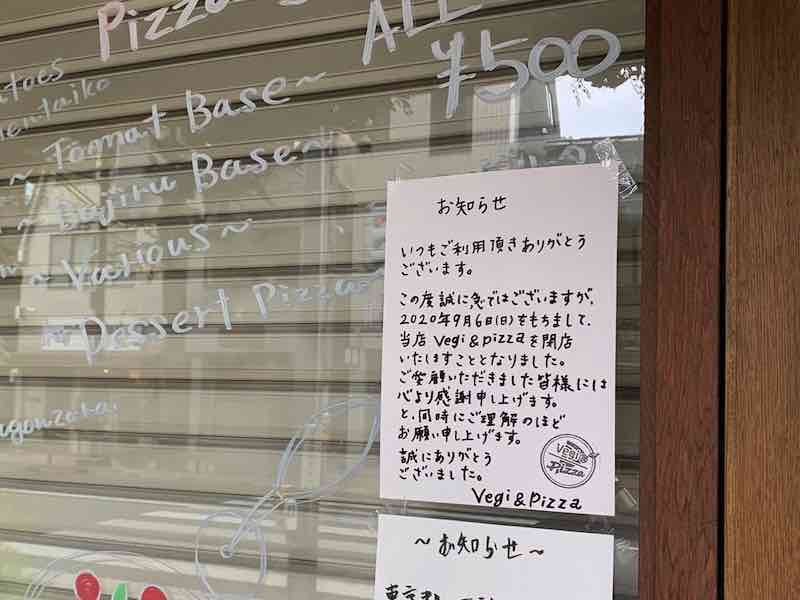 Pizza
ALL
¥500
~ Toomat Base~
~ Bajiru Base~
~ Various~
~ Dessert Pizza~
お知らせ
いつもご利用頂きありがとう
ございます。
この度誠に急ではございますが、
2020年9月6日(日)をもちまして、
当店 Vegi&pizzaを閉店
いたすこととなりました。
ご笑顧いただきました皆様には
心より感謝申し上げます。
と、同時にご理解のほど
お願い申し上げます。
誠にありがとう
ございました。
Vegi
Pizza
Vegi&Pizza
~お知らせ~